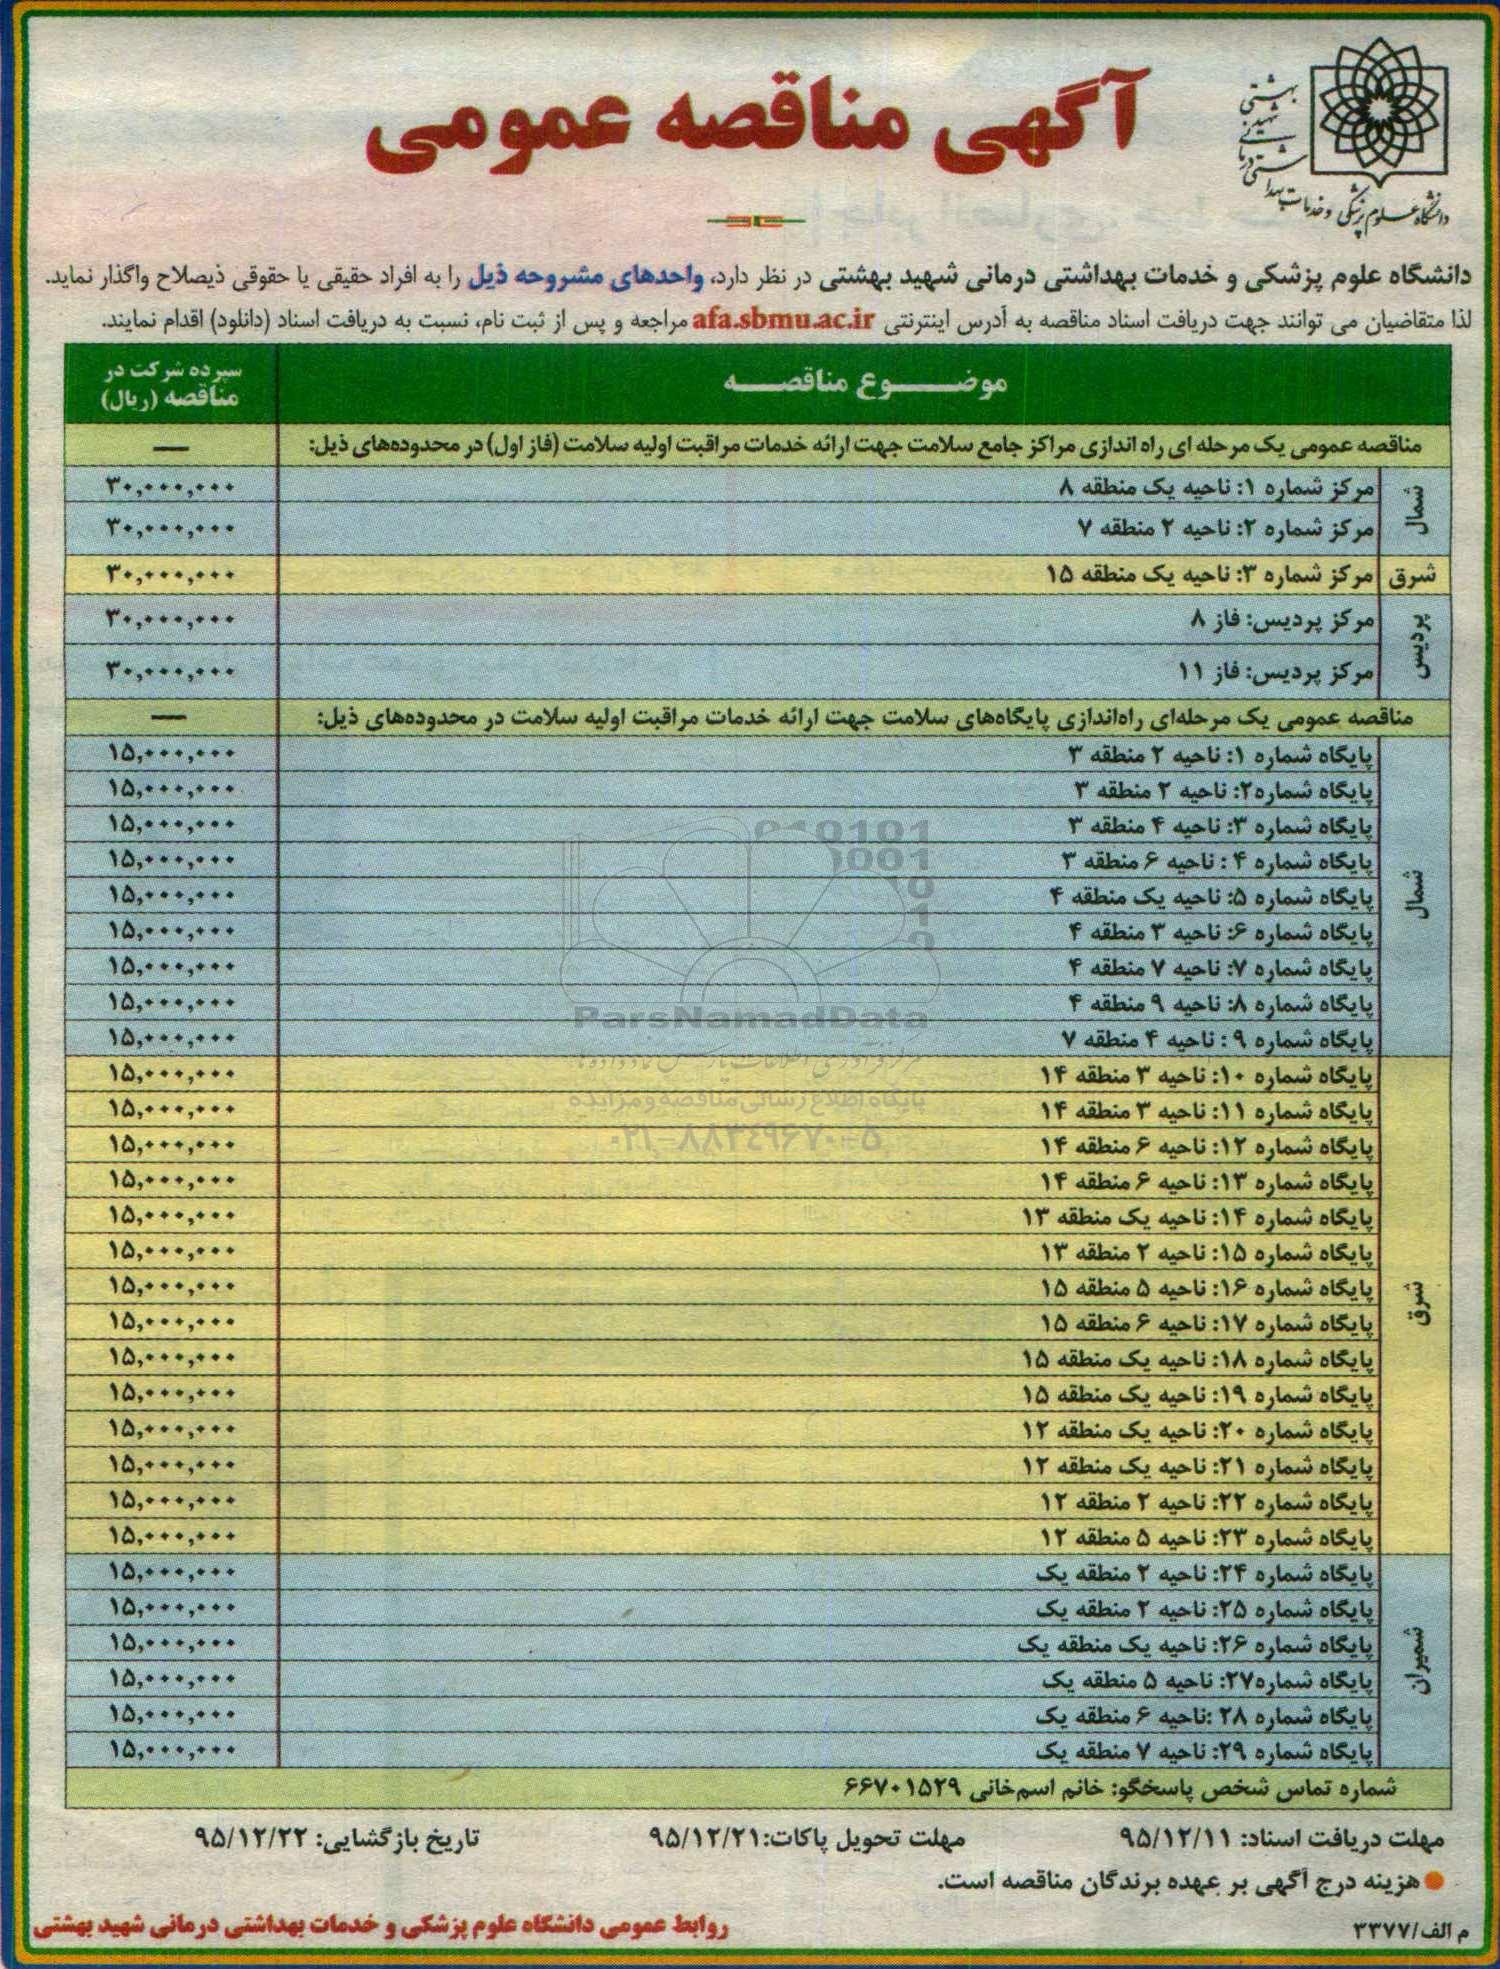 دانشگاه علوم پزشکی و خدمات بهداشتی درمانی شهید بهشتی
آگهی مناقصه عمومی
دانشگاه علوم پزشکی و خدمات بهداشتی درمانی شهید بهشتی در نظر دارد، واحدهای مشروحه ذیل را به افراد حقیقی یا حقوقی ذیصلاح واگذار نماید.
لذا متقاضیان می توانند جهت دریافت اسناد مناقصه به آدرس اینترنتی afa.sbmu.ac.ir مراجعه و پس از ثبت نام، نسبت به دریافت اسناد (دانلود) اقدام نمایند.
موضوع مناقصه
سپرده شرکت در مناقصه (ریال)
مناقصه عمومی یک مرحله ای راه اندازی مراکز جامع سلامت جهت ارائه خدمات مراقبت اولیه سلامت (فاز اول) در محدوده‌های ذیل: —
شمال
مرکز شماره ۱: ناحیه یک منطقه ۸ ۳۰,۰۰۰,۰۰۰
مرکز شماره ۲: ناحیه ۲ منطقه ۷ ۳۰,۰۰۰,۰۰۰
شرق
مرکز شماره ۳: ناحیه یک منطقه ۱۵ ۳۰,۰۰۰,۰۰۰
پردیس
مرکز پردیس: فاز ۸ ۳۰,۰۰۰,۰۰۰
مرکز پردیس: فاز ۱۱ ۳۰,۰۰۰,۰۰۰
مناقصه عمومی یک مرحله‌ای راه‌اندازی پایگاه‌های سلامت جهت ارائه خدمات مراقبت اولیه سلامت در محدوده‌های ذیل: —
شمال
پایگاه شماره ۱: ناحیه ۲ منطقه ۳ ۱۵,۰۰۰,۰۰۰
پایگاه شماره۲: ناحیه ۲ منطقه ۳ ۱۵,۰۰۰,۰۰۰
پایگاه شماره ۳: ناحیه ۴ منطقه ۳ ۱۵,۰۰۰,۰۰۰
پایگاه شماره ۴ : ناحیه ۶ منطقه ۳ ۱۵,۰۰۰,۰۰۰
پایگاه شماره ۵: ناحیه یک منطقه ۴ ۱۵,۰۰۰,۰۰۰
پایگاه شماره ۶: ناحیه ۳ منطقه ۴ ۱۵,۰۰۰,۰۰۰
پایگاه شماره ۷: ناحیه ۷ منطقه ۴ ۱۵,۰۰۰,۰۰۰
پایگاه شماره ۸: ناحیه ۹ منطقه ۴ ۱۵,۰۰۰,۰۰۰
پایگاه شماره ۹ : ناحیه ۴ منطقه ۷ ۱۵,۰۰۰,۰۰۰
شرق
پایگاه شماره ۱۰: ناحیه ۳ منطقه ۱۴ ۱۵,۰۰۰,۰۰۰
پایگاه شماره ۱۱: ناحیه ۳ منطقه ۱۴ ۱۵,۰۰۰,۰۰۰
پایگاه شماره ۱۲: ناحیه ۶ منطقه ۱۴ ۱۵,۰۰۰,۰۰۰
پایگاه شماره ۱۳: ناحیه ۶ منطقه ۱۴ ۱۵,۰۰۰,۰۰۰
پایگاه شماره ۱۴: ناحیه یک منطقه ۱۳ ۱۵,۰۰۰,۰۰۰
پایگاه شماره ۱۵: ناحیه ۲ منطقه ۱۳ ۱۵,۰۰۰,۰۰۰
پایگاه شماره ۱۶: ناحیه ۵ منطقه ۱۵ ۱۵,۰۰۰,۰۰۰
پایگاه شماره ۱۷: ناحیه ۶ منطقه ۱۵ ۱۵,۰۰۰,۰۰۰
پایگاه شماره ۱۸: ناحیه یک منطقه ۱۵ ۱۵,۰۰۰,۰۰۰
پایگاه شماره ۱۹: ناحیه یک منطقه ۱۵ ۱۵,۰۰۰,۰۰۰
پایگاه شماره ۲۰: ناحیه یک منطقه ۱۲ ۱۵,۰۰۰,۰۰۰
پایگاه شماره ۲۱: ناحیه یک منطقه ۱۲ ۱۵,۰۰۰,۰۰۰
پایگاه شماره ۲۲: ناحیه ۲ منطقه ۱۲ ۱۵,۰۰۰,۰۰۰
پایگاه شماره ۲۳: ناحیه ۵ منطقه ۱۲ ۱۵,۰۰۰,۰۰۰
شمیران
پایگاه شماره ۲۴: ناحیه ۲ منطقه یک ۱۵,۰۰۰,۰۰۰
پایگاه شماره ۲۵: ناحیه ۲ منطقه یک ۱۵,۰۰۰,۰۰۰
پایگاه شماره ۲۶: ناحیه یک منطقه یک ۱۵,۰۰۰,۰۰۰
پایگاه شماره۲۷: ناحیه ۵ منطقه یک ۱۵,۰۰۰,۰۰۰
پایگاه شماره ۲۸ :ناحیه ۶ منطقه یک ۱۵,۰۰۰,۰۰۰
پایگاه شماره ۲۹: ناحیه ۷ منطقه یک ۱۵,۰۰۰,۰۰۰
ParsNamadData
مرکز فرآوری اطلاعات پارس نماد داده ها
پایگاه اطلاع رسانی مناقصه و مزایده
۰۲۱-۸۸۳۴۹۶۷۰-۵
شماره تماس شخص پاسخگو: خانم اسم‌خانی ۶۶۷۰۱۵۲۹
مهلت دریافت اسناد: ۹۵/۱۲/۱۱ مهلت تحویل پاکات:۹۵/۱۲/۲۱ تاریخ بازگشایی: ۹۵/۱۲/۲۲
● هزینه درج آگهی بر عهده برندگان مناقصه است.
م الف/۳۳۷۷ روابط عمومی دانشگاه علوم پزشکی و خدمات بهداشتی درمانی شهید بهشتی